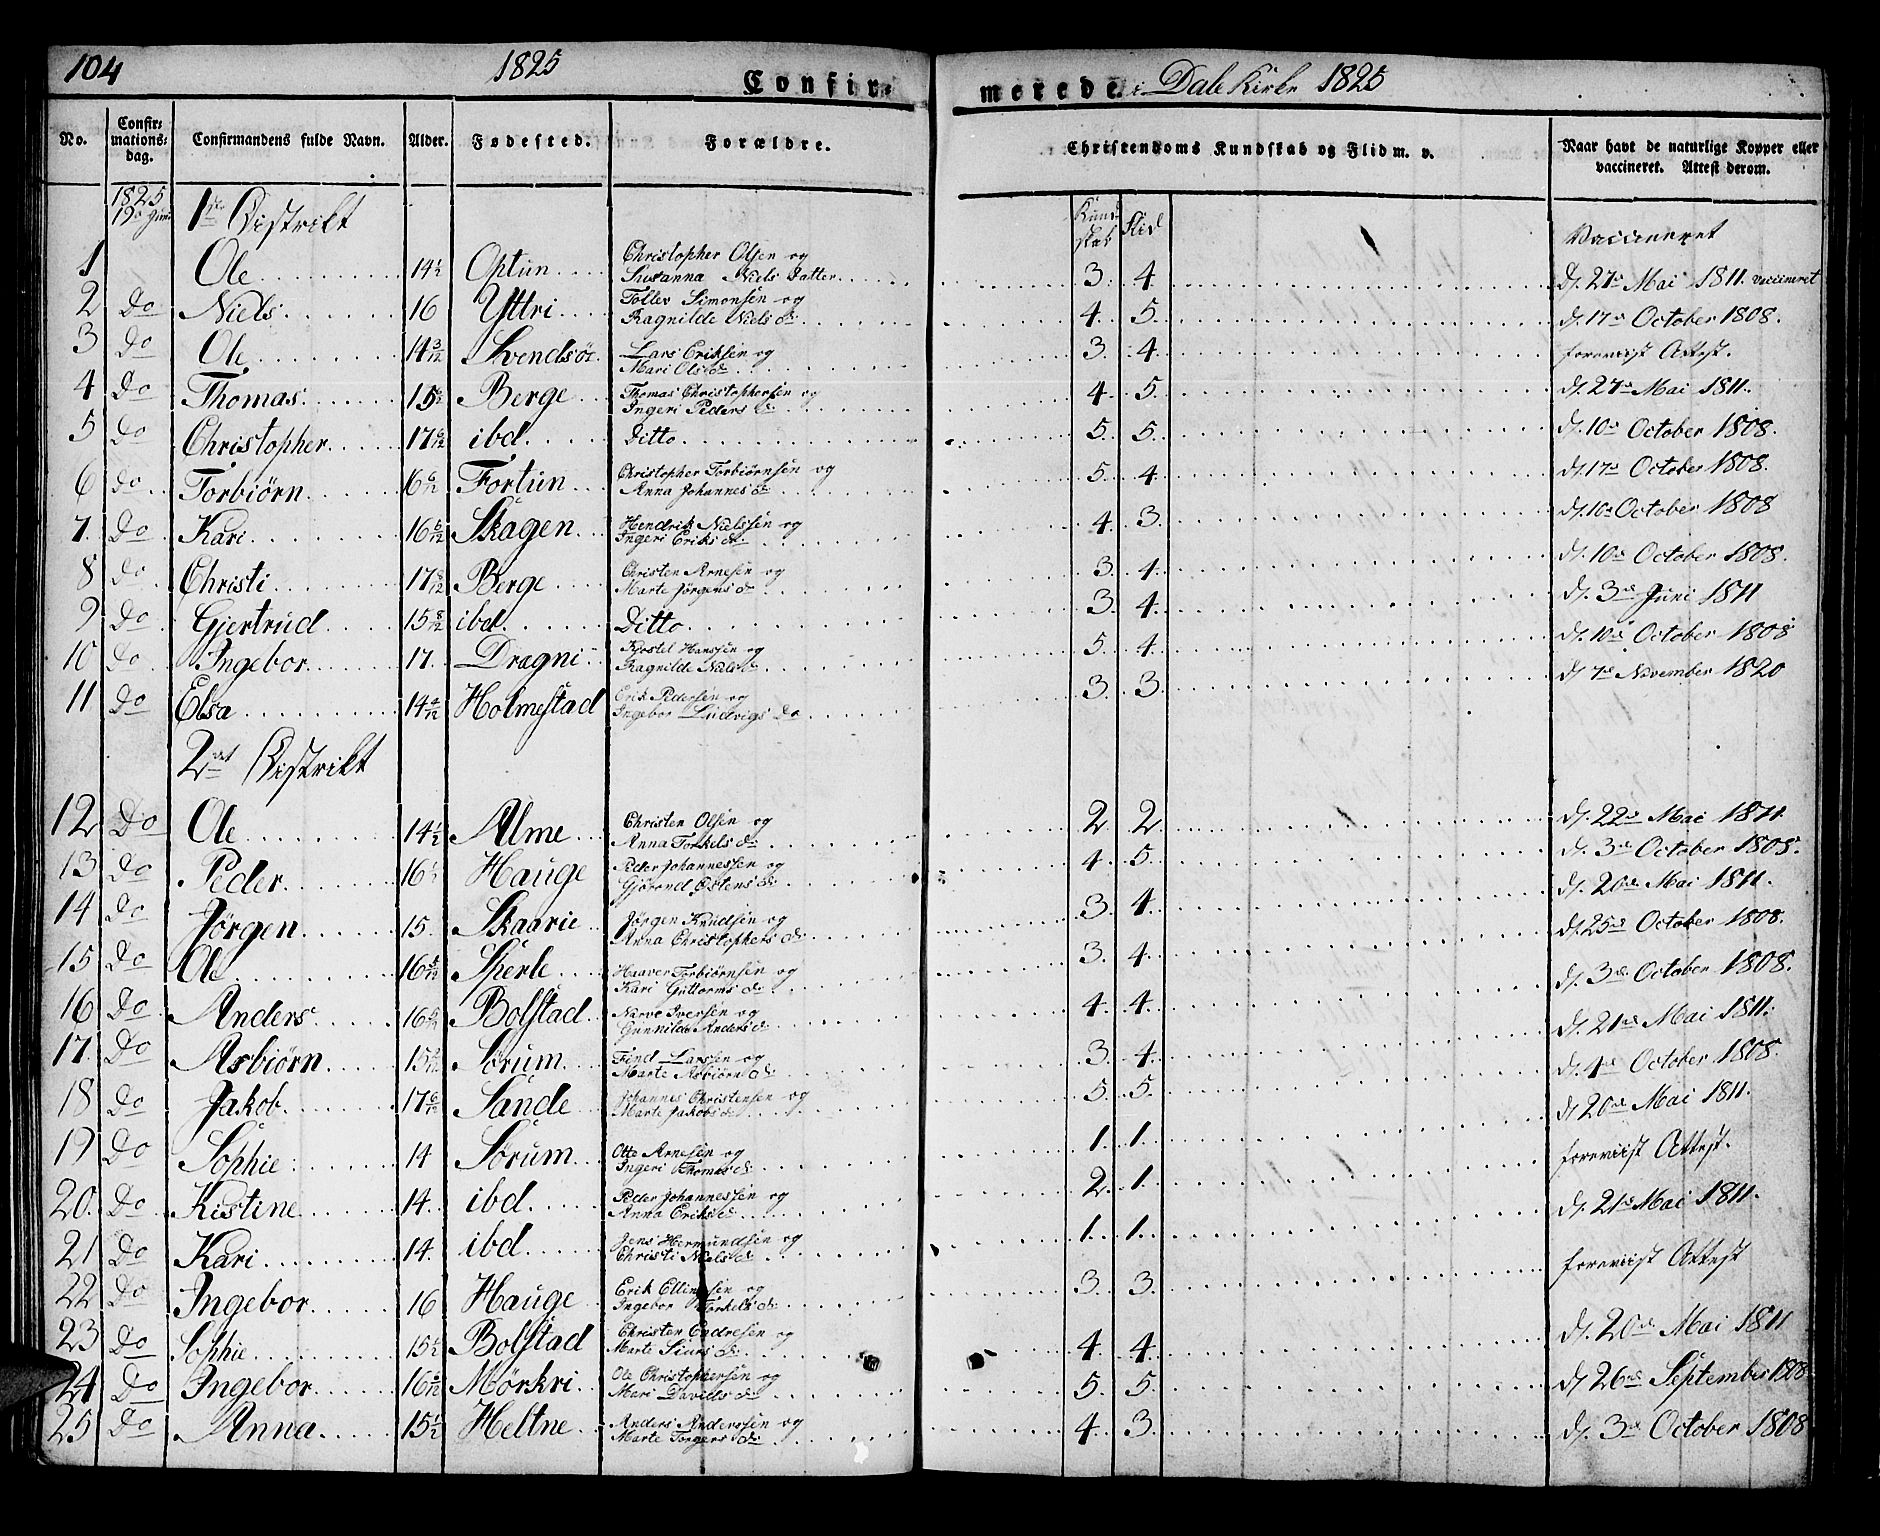 104 1825 Confir- merede i Dale Kirke 1825
No. Confir- mations- dag. Confirmandens fulde Navn. Alder. Fødested. Forældre. Christendoms Kundskab og Flid m. v. Naar havt de naturlige Kopper eller vaccineret. Attest derom.
1825 19de Juni 1ste Distrikt Kund- skab Flid Vaccineret
1 Ole 14½ Optun Christopher Olsen og Susanna Niels Datter 3 4 d. 27de Mai 1811 vaccineret
2 Do Niels 16 Yttri Tollev Simonsen og Ragnilde Niels dr 4 5 d. 17de October 1808.
3 Do Ole 14 3/12 Svendsøe Lars Eriksen og Mari Ols dr 3 4 foreviist Attest.
4 Do Thomas 15 Berge Thomas Christophersen og Ingeri Peders dr 4 5 d. 27de Mai 1811.
5 Do Christopher 17 6/12 ibd Ditto 5 5 d. 10de October 1808.
6 Do Torbiørn 16 6/12 Fortun Christopher Torbiørnsen og Anna Johannes dr 5 4 d. 17de October 1808.
7 Do Kari 16 6/12 Skagen Hendrik Nielssen og Ingeri Eriks dr 4 3 d. 10de October 1808
8 Do Christi 17 Berge Christen Arnesen og Marte Jørgens dr 3 4 d. 10de October 1808.
9 Do Gjertrud 15 8/12 ibd Ditto 3 4 d. 3de Juni 1811
10 Do Ingebor 17 Drægni Kjostel Hanssen og Ragnilde Niels dr 5 4 d. 10de October 1808
11 Do Elsa 14 Holmestad Erik Pedersen og Ingebor Ludvigs Do 3 3 d. 7de November 1820
2det Distrikt
12 Do Ole 14½ Alme Christen Olsen og Anna Torkels dr 2 2 d. 22de Mai 1811
13 Do Peder 16 Hauge Peder Johannessen og Gjørend Østens dr 4 5 d. 3de October 1808.
14 Do Jørgen 15 Skaarie Jørgen Knudsen og Anna Christophers dr 3 4 d. 20de Mai 1811.
15 Do Ole 16 Sperle Haaver Torbiørnsen og Kari Guttorms dr 3 4 d. 25de October 1808.
16 Do Anders 16 Bolstad Narve Iversen og Gunnilde Anders dr 4 4 d. 3de October 1808.
17 Do Asbiørn 15 Sørum Find Larssen og Marte Asbiørn dr 3 4 d. 21de Mai 1811.
18 Do Jakob 17 6/12 Sande Johannes Christensen og Marte Jakobs dr 5 5 d. 4de October 1808.
19 Do Sophie 14 Sørum Otte Arnesen og Ingeri Thomas dr 1 1 d. 20de Mai 1811.
20 Do Kistine 14 ibd Peder Johannessen og Anna Eriks dr 2 1 foreviist Attest.
21 Do Kari 14 ibd Jens Hermundsen og Christi Niels dr 1 1 d. 21de Mai 1811.
22 Do Ingebor 16 Hauge Erik Ellingsen og Ingebor Torkels dr 3 3 foreviist Attest
23 Do Sophie 15½ Bolstad Christen Endresen og Marte Siurs dr 4 4 d. 20de Mai 1811
24 Do Ingebor 16 Mørkri Ole Christophersen og Mari Davids dr 5 5 d. 26de September 1808
25 Do Anna 15½ Heltne Anders Anderssen og Marte Torgers dr 4 3 d. 3de October 1808